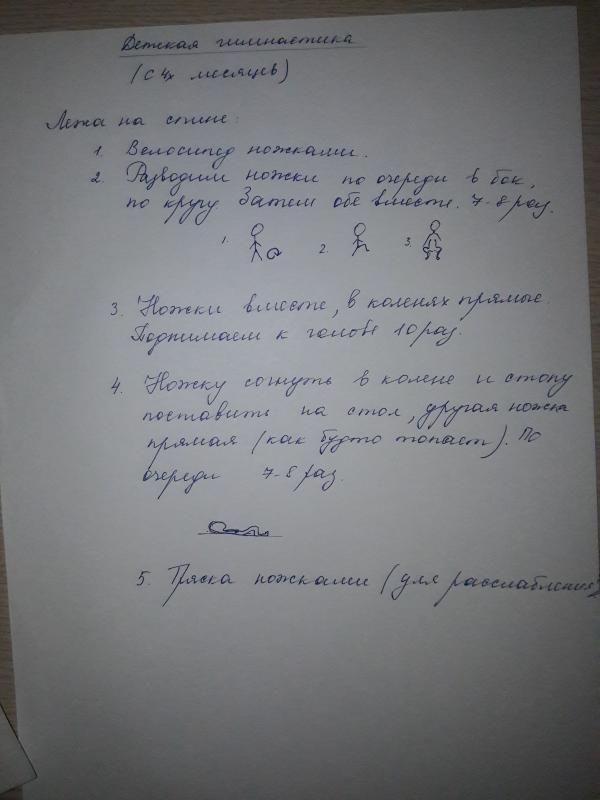 Детская гимнастика
(с 4х месяцев)
Лежа на спине:
1. Велосипед ножками.
2. Разводим ножки по очереди в бок,
по кругу. Затем обе вместе. 7-8 раз.
1. 2. 3.
3. Ножки вместе, в коленях прямые.
Поднимаем к голове 10 раз.
4. Ножку согнуть в колене и стопу
поставить на стол, другая ножка
прямая (как будто топает). По
очереди 7-8 раз.
5. Тряска ножками (для расслабления)